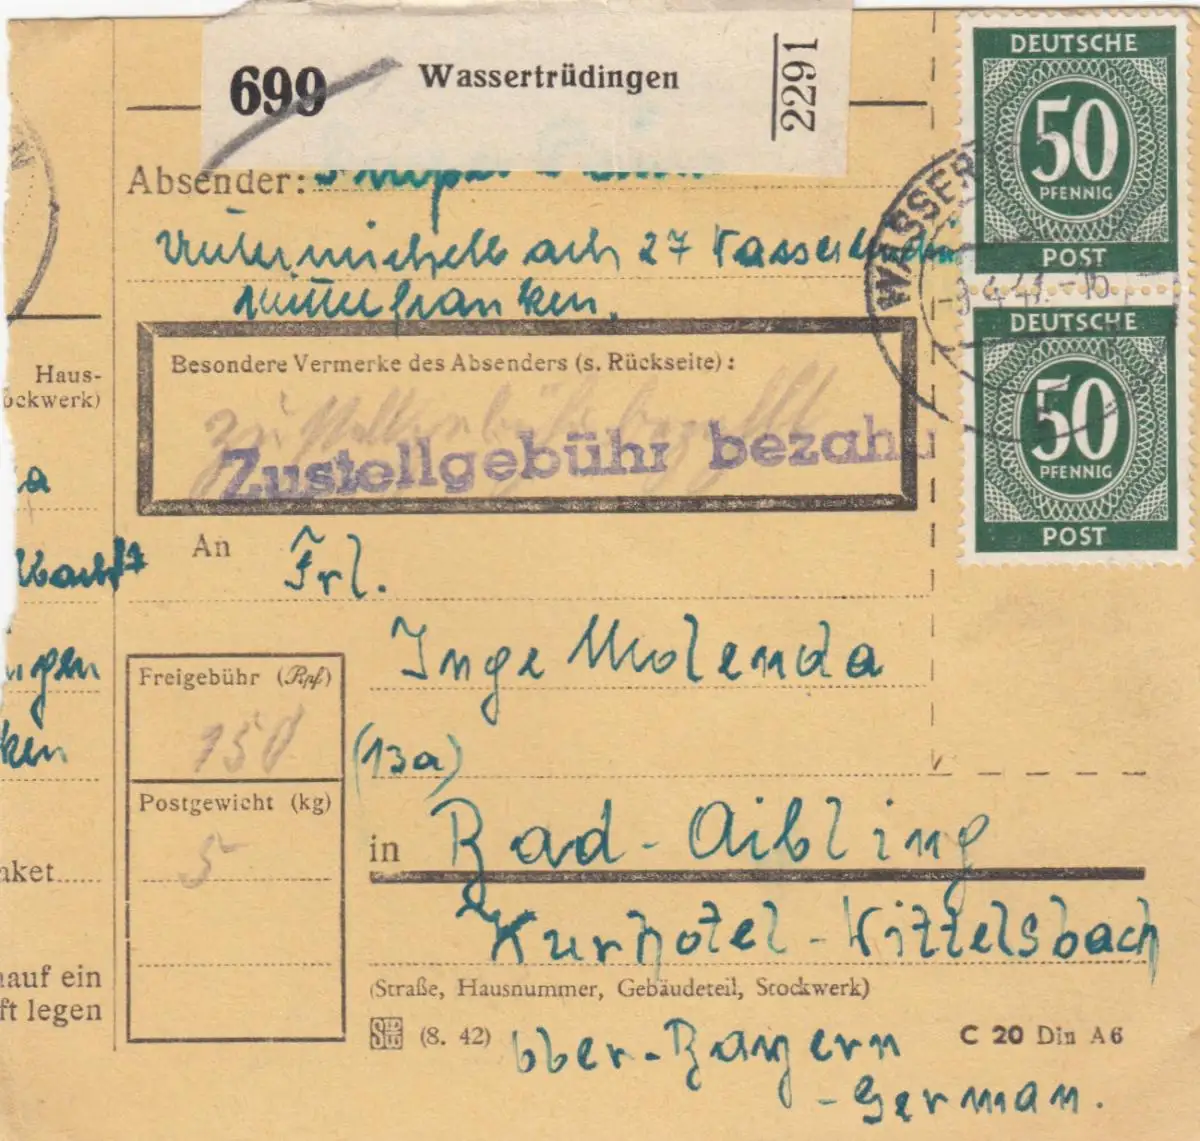 699 Wassertrüdingen 2291
Absender:
27
Mittelfranken.
DEUTSCHE
50
PFENNIG
POST
DEUTSCHE
50
PFENNIG
POST
WASSER
-9.4.47.-16
Besondere Vermerke des Absenders (s. Rückseite):
Zustellgebühr bezahlt
Zustellgebühr bezahl
Haus-
ockwerk)
a
ngen
ken
aket.....
auf ein
ft legen
An Frl.
Inge Molenda
Freigebühr (Rpf)
150
Postgewicht (kg)
5
(13a)
in Bad-Aibling
Kurhotel-Wittelsbach
(Straße, Hausnummer, Gebäudeteil, Stockwerk)
(8. 42) Ober-Bayern C 20 Din A6
-German.